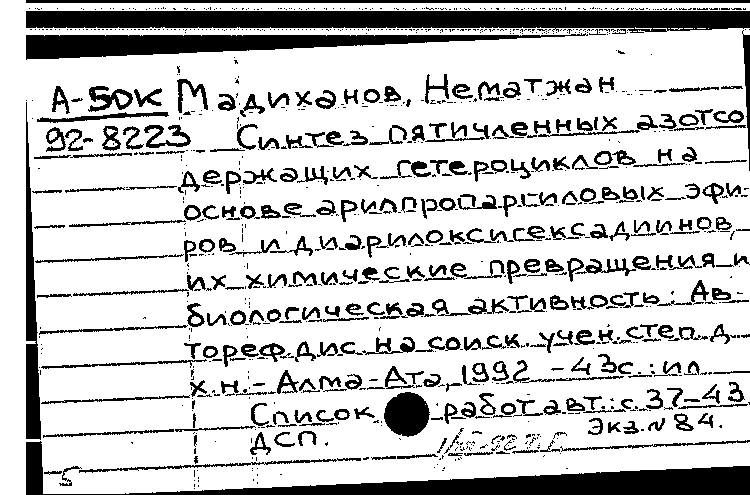 А-50К Мадиханов, Нематжан
92-8223 Синтез пятичленных азотсо
держащих гетероциклов на
основе арилпропаргиловых эфи-
ров и диарилоксигексадиинов,
их химические превращения и
биологическая активность: Ав-
тореф.дис. на соиск. учен.степ. д.
х.н. - Алма-Ата, 1992 - 43с.: ил
Список работ авт.: с. 37-43
ДСП. Экз. N 84.
5